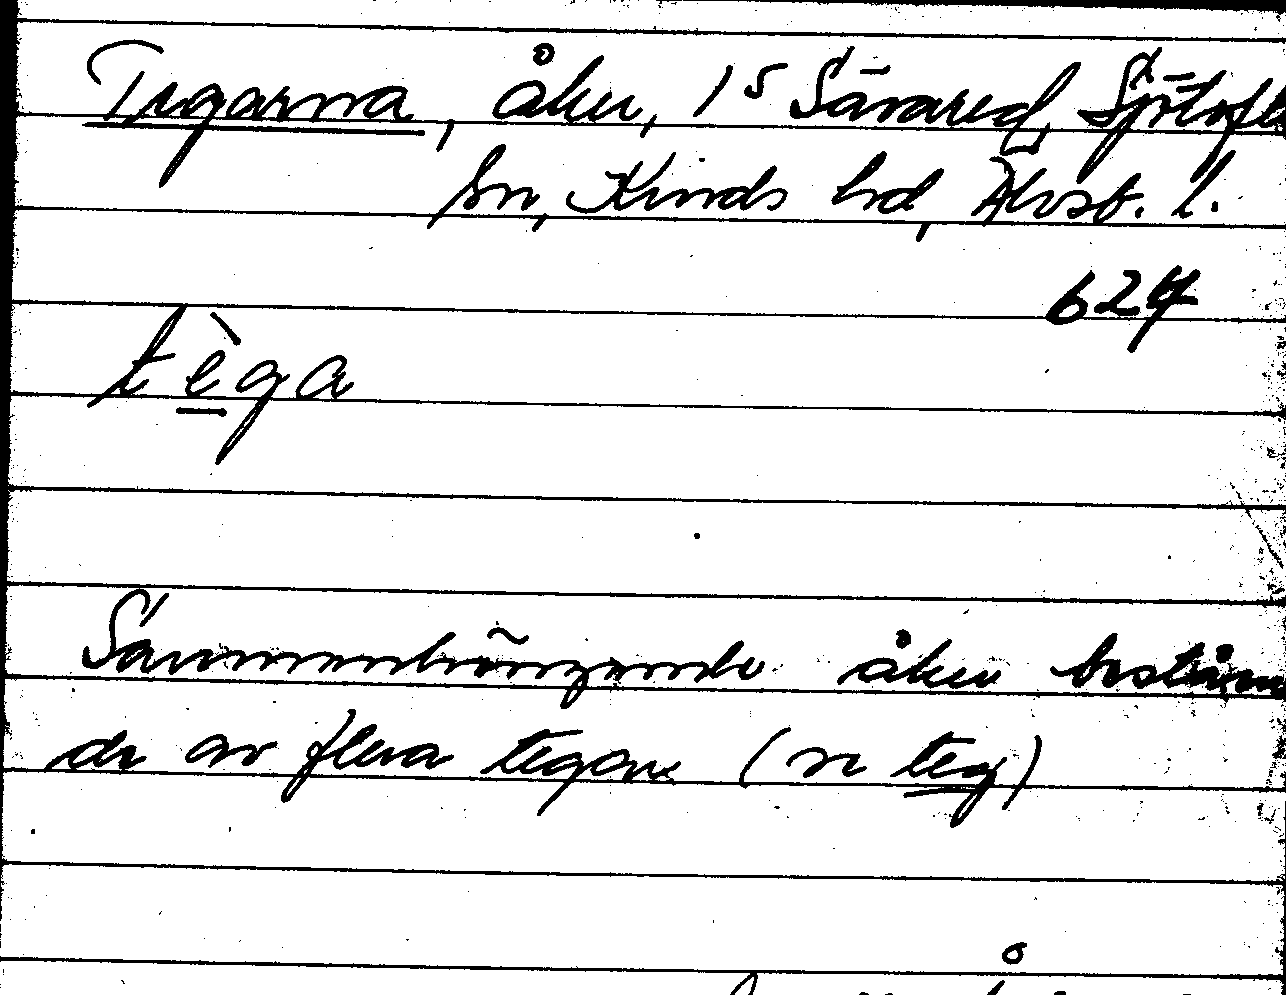 Tegarna, åker, 1 S Sävared, Sjötofta
sn, Kinds hd, Älvsb. l.
624
tèga
Sammanhängande åker bestå
de av flera tegar (se teg)